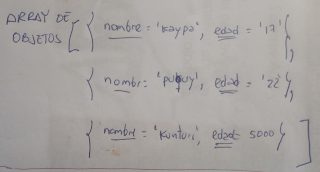 ARRAY DE
OBJETOS [ { nombre = 'Kaypa', edad = '17' },
{ nombr: 'puquy', edad = '22' },
{ nombre = 'Kunturi', edad: 5000 } ]